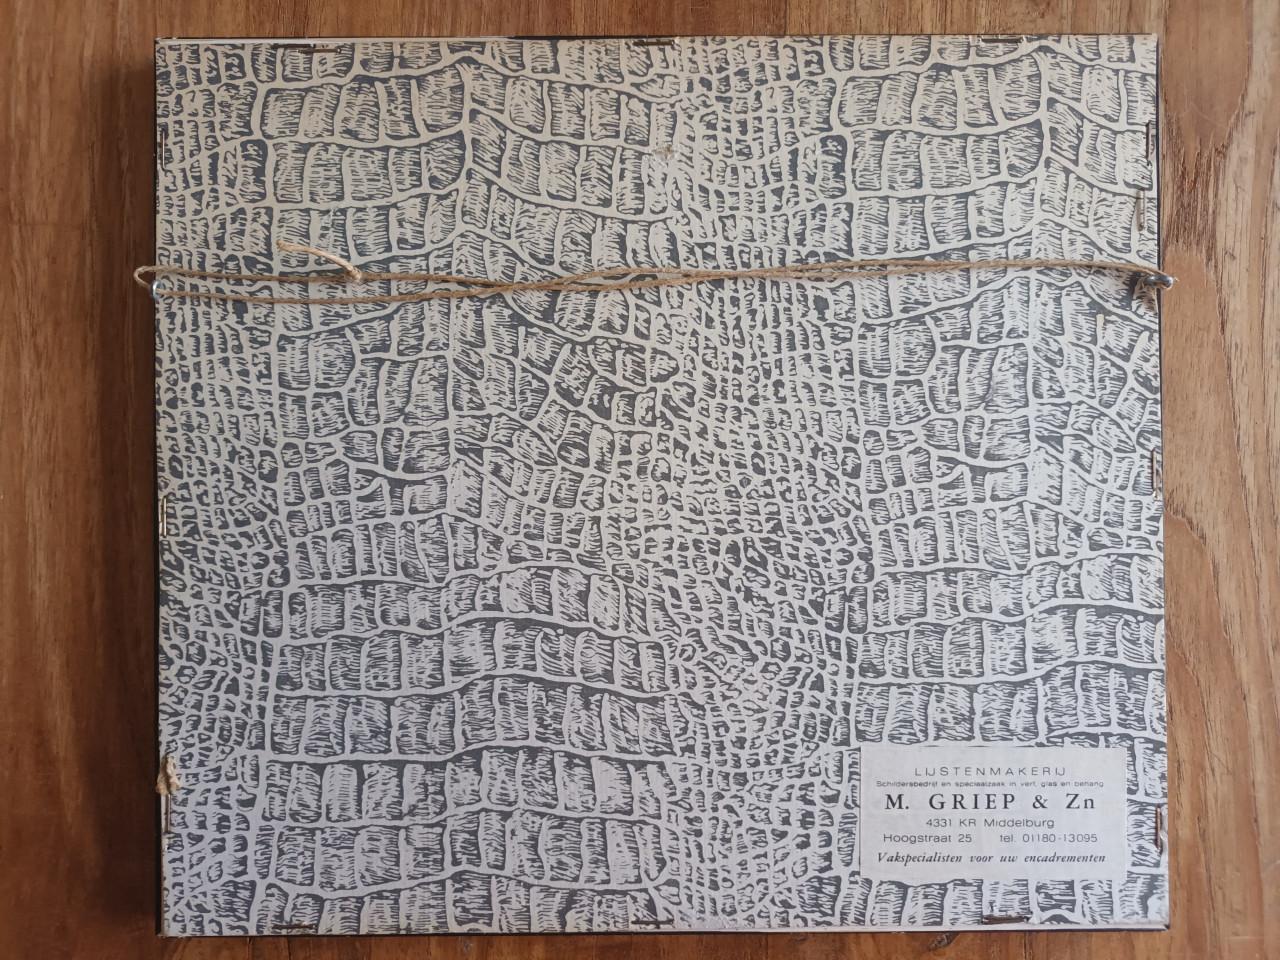 LIJSTENMAKERIJ
Schildersbedrijf en speciaalzaak in verf, glas en behang
M. GRIEP & Zn
4331 KR Middelburg
Hoogstraat 25 tel. 01180-13095
Vakspecialisten voor uw encadrementen